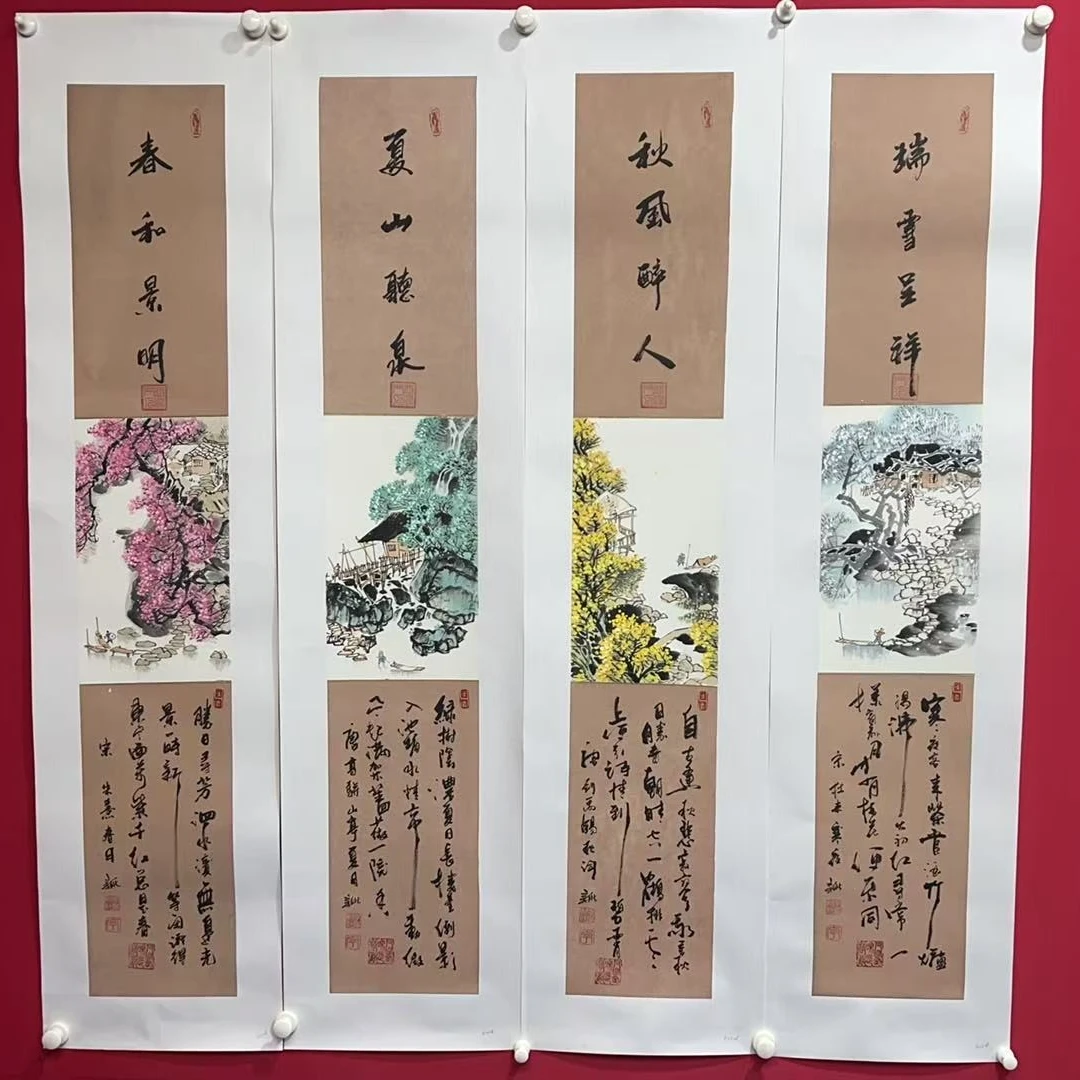 春和景明
勝日寻芳泗水濱無邊光
景一時新等闲識得
東風面萬紫千红总是春
宋 朱熹春日
夏山聽泉
綠樹陰濃夏日長樓臺倒影
入池塘水精帘動微
风起满架蔷薇一院香
唐高駢山亭夏日
秋風醉人
自古逢秋悲寂寥我言秋
日勝春朝晴空一鶴排云
上便引诗情到碧霄
唐刘禹錫秋词
瑞雪呈祥
寒夜客来茶當酒竹爐
湯沸火初红尋常一
樣窗前月才有梅花便不同
宋杜耒寒夜